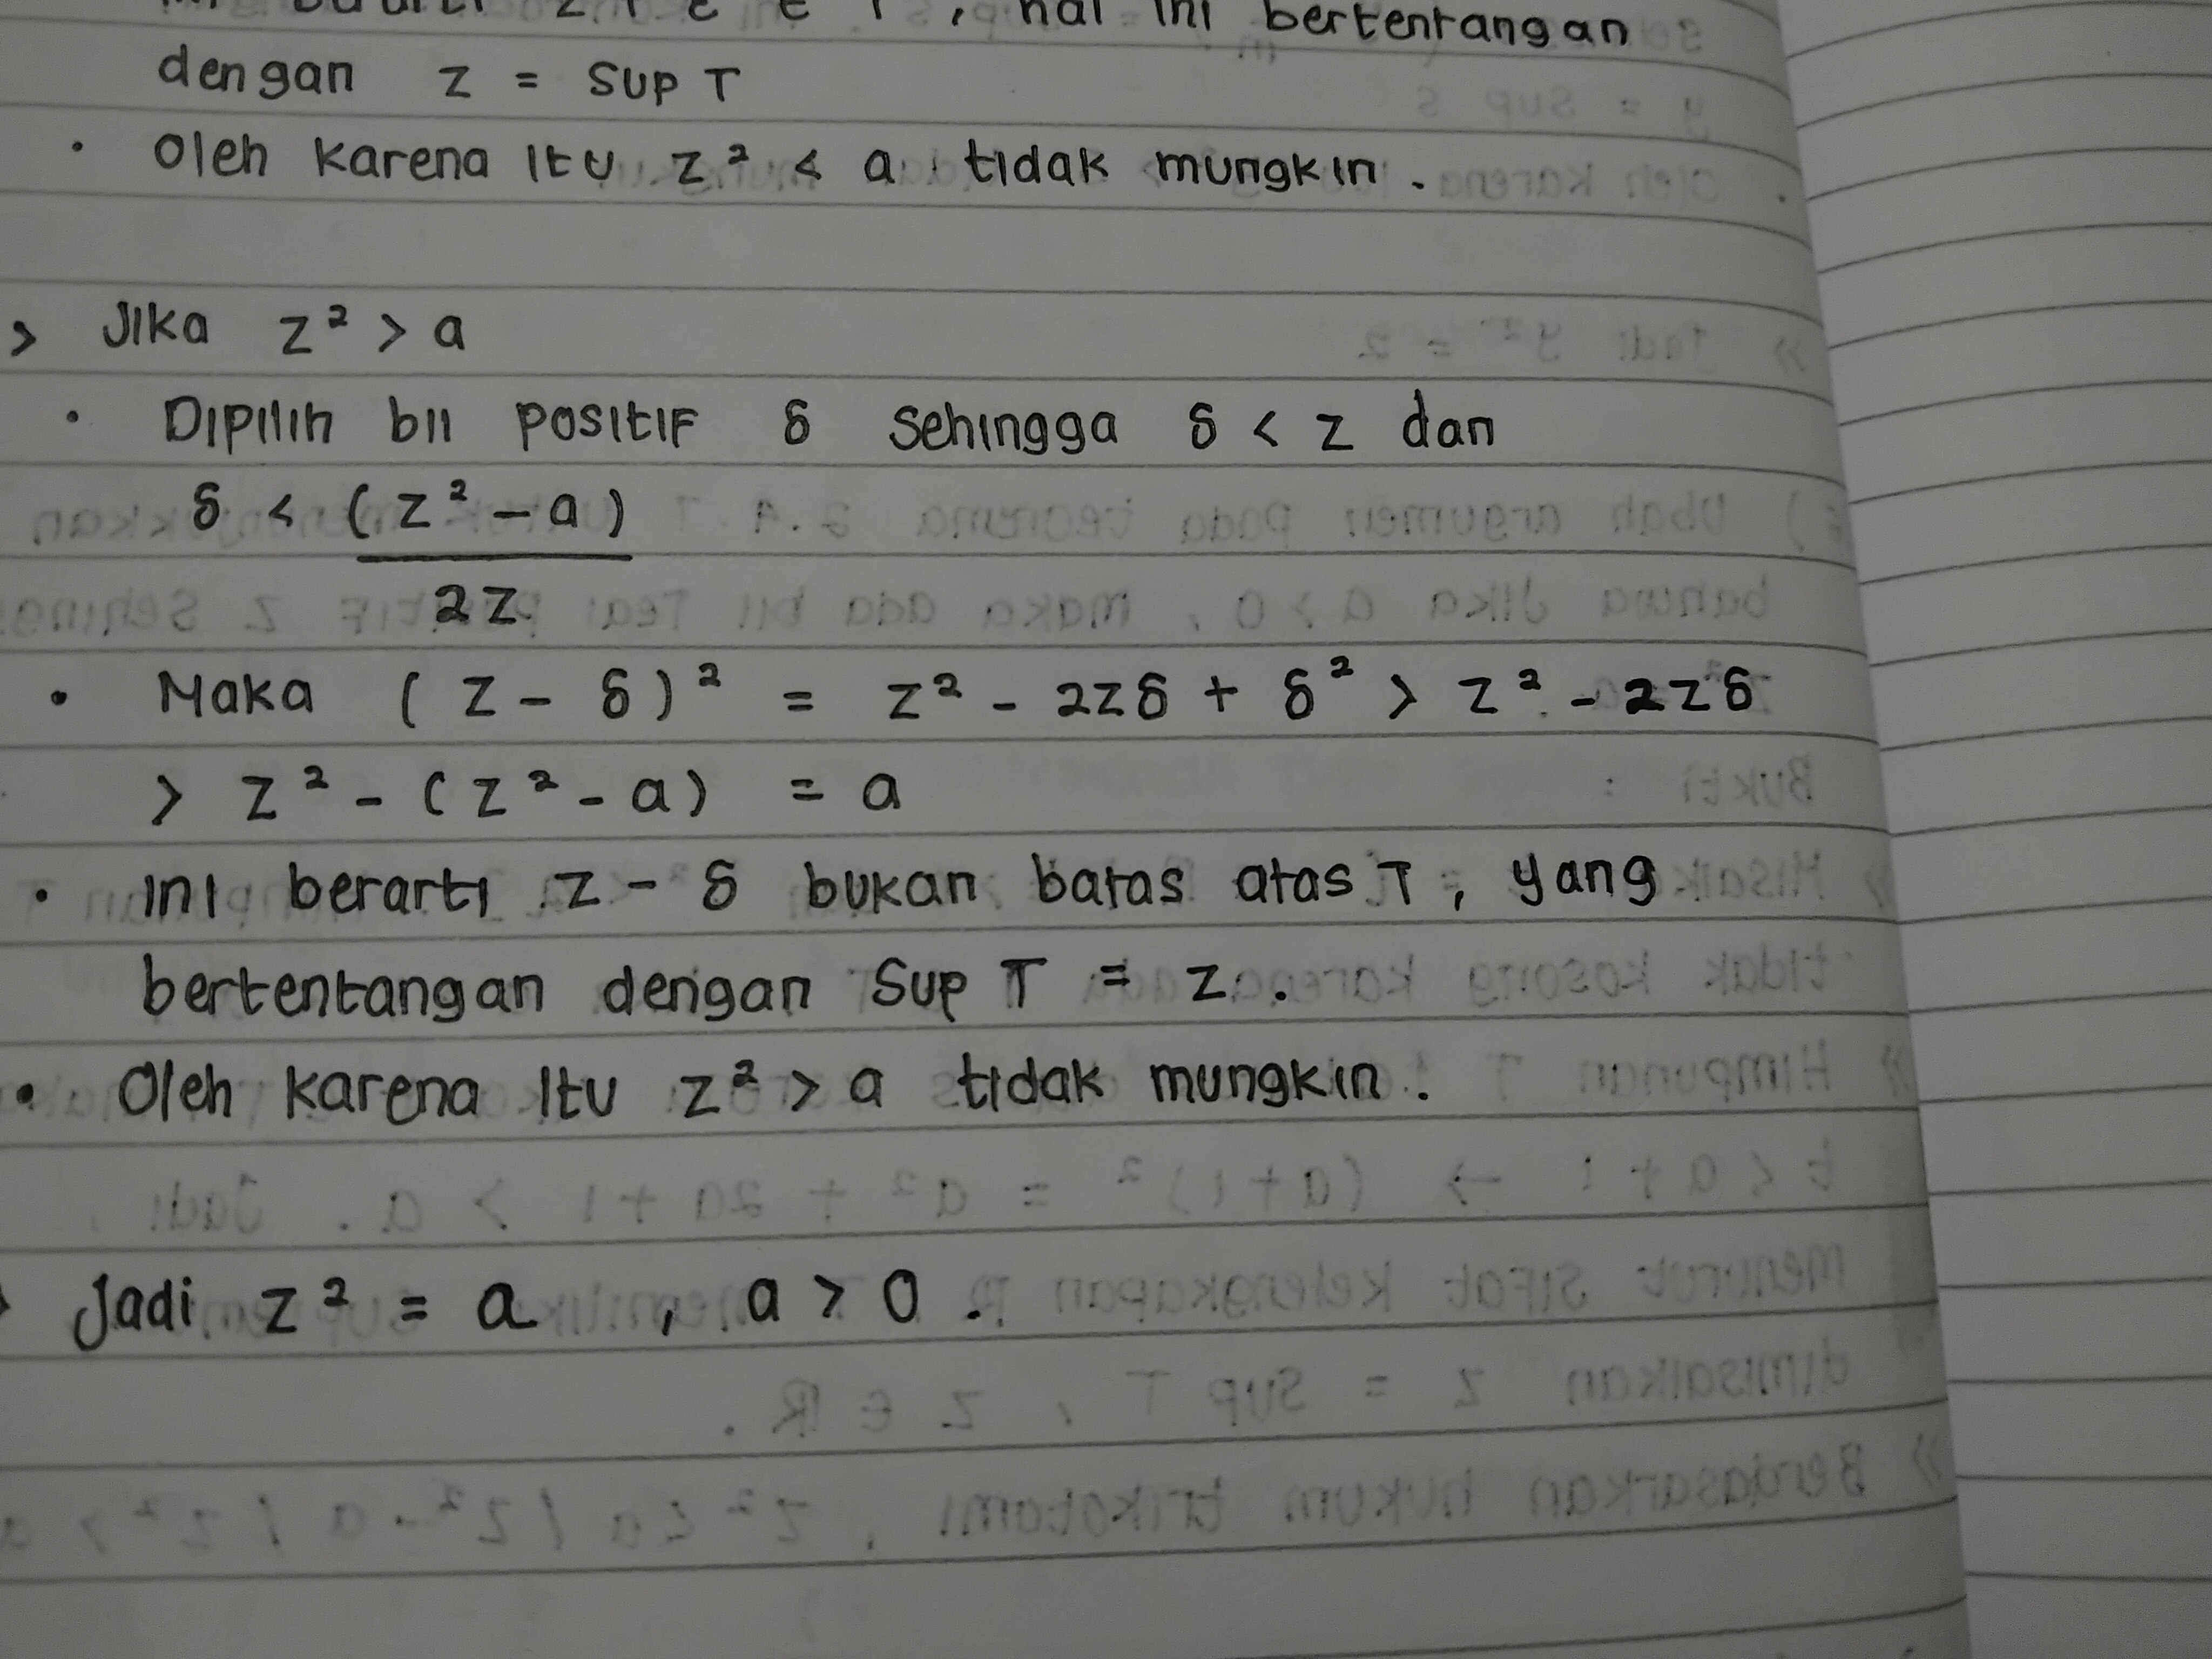 , hal ini bertentangan
dengan z = sup T
• Oleh karena itu z² < a tidak mungkin.
> Jika z² > a
• Dipilih bil positif δ sehingga δ < z dan
δ < (z² - a)
2z
• Maka (z - δ)² = z² - 2zδ + δ² > z² - 2zδ
> z² - (z² - a) = a
• Ini berarti z - δ bukan batas atas T, yang
bertentangan dengan sup T = z.
• Oleh karena itu z² > a tidak mungkin.
Jadi z² = a, a > 0.